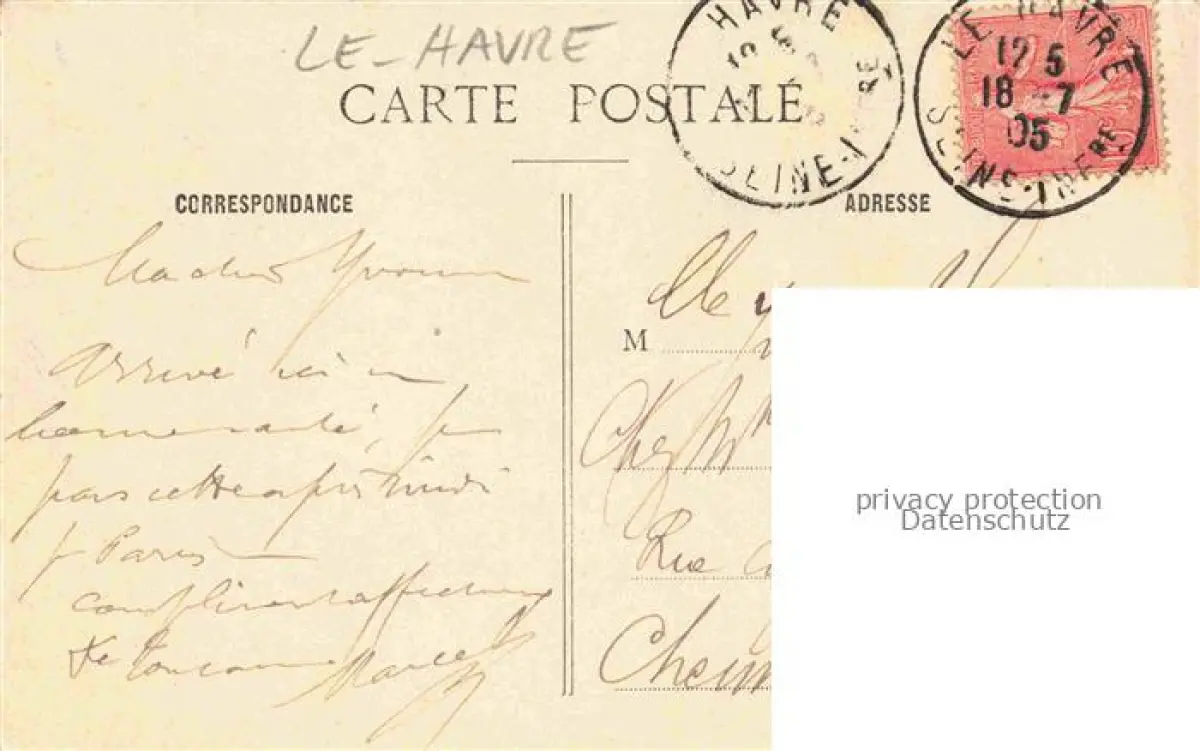 LE-HAVRE
CARTE POSTALE
HAVRE
SEINE-INFRE
LE HAVRE
12 5
18 -7
05
SEINE-INFRE
CORRESPONDANCE
Ma chère Yvonne
Arrivé ici en
bonne santé, je
pars cette après midi
pr Paris
compliments affectueux
de ton Marcel
ADRESSE
Mlle
M
Chez Mr
Rue
privacy protection
Datenschutz